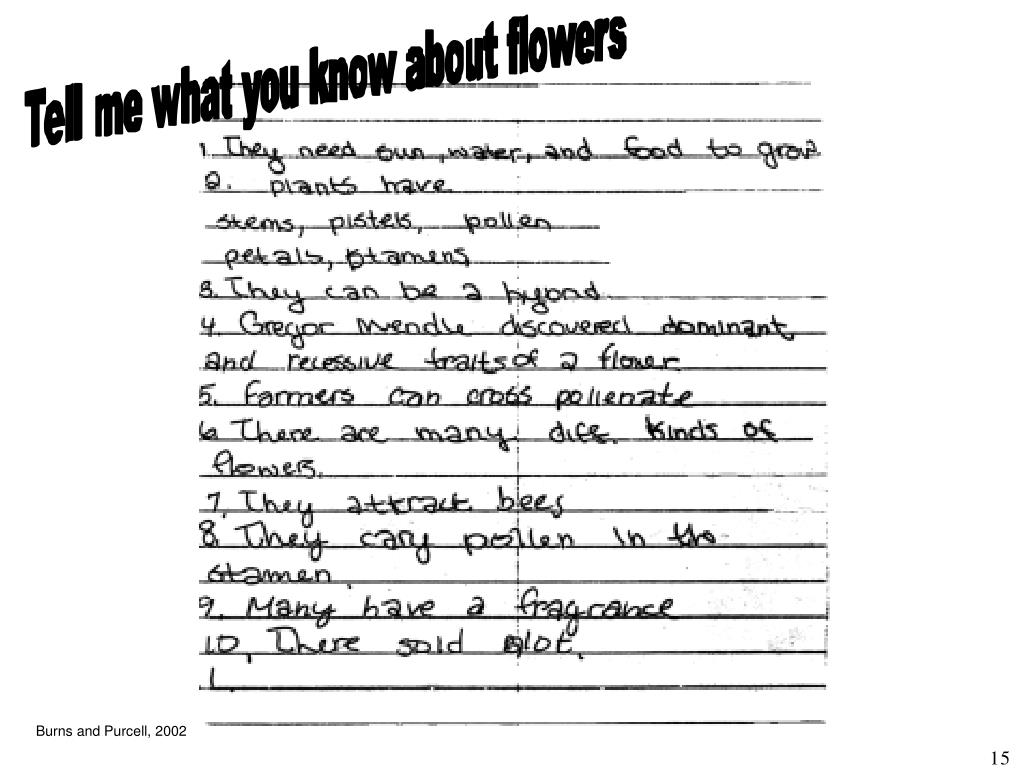 Tell me what you know about flowers
1. They need sun, water, and food to grow
2. plants have
stems, pistels, pollen
petals, stamens
3. They can be a hybond
4. Gregor Mendle discovered dominant
and recessive traits of a flower
5. Farmers can cross pollenate
6. There are many diff. kinds of
flowers.
7. They attract bees
8. They cary pollen in the
stamen.
9. Many have a fragrance
10. There sold alot.
1.
Burns and Purcell, 2002
15